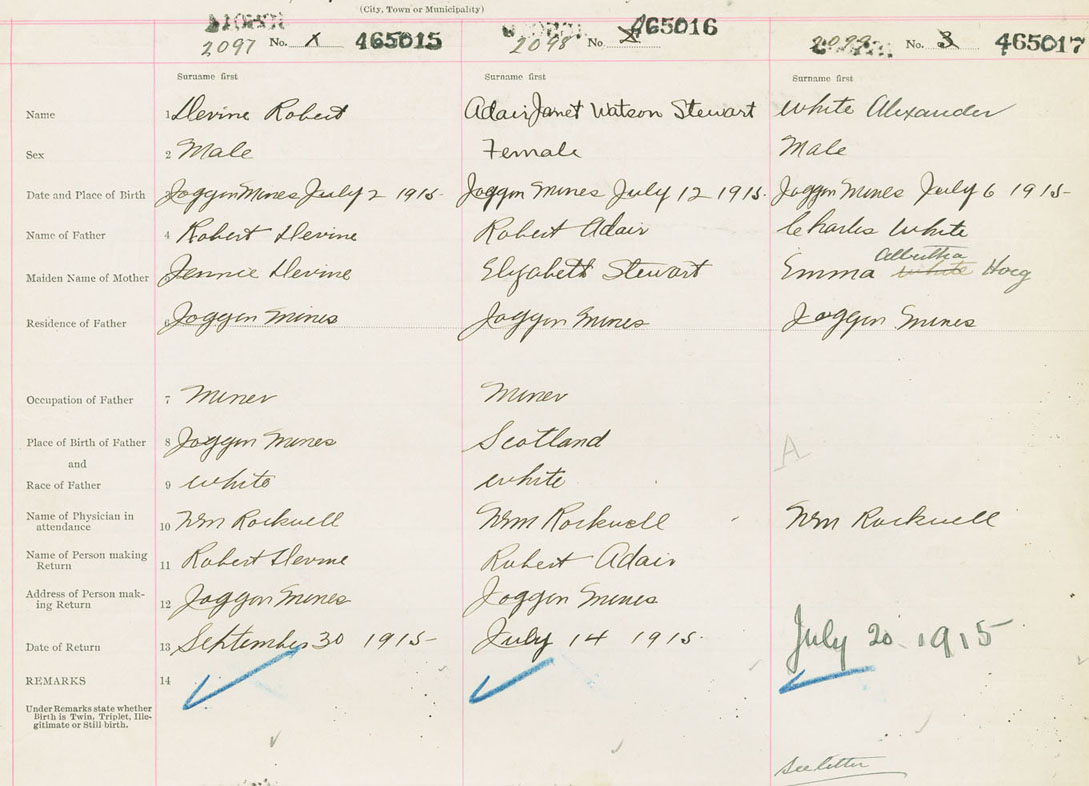 (City, Town or Municipality)
2097 No. X 465015 2098 No 465016 2099 No. 3 465017
Surname first Surname first Surname first
Name 1 Devine Robert Adair Janet Watson Stewart White Alexander
Sex 2 Male Female Male
Date and Place of Birth 3 Joggin Mines July 2 1915. Joggin Mines July 12 1915. Joggin Mines July 6 1915-
Name of Father 4 Robert Devine Robert Adair Charles White
Albertha
Maiden Name of Mother Jennie Devine Elizabeth Stewart Emma white Hoeg
Residence of Father 6 Joggin Mines Joggin Mines Joggin Mines
Occupation of Father 7 Miner Miner
Place of Birth of Father 8 Joggin Mines Scotland
and
A
Race of Father 9 white white
Name of Physician in
attendance 10 Wm Rockwell Wm Rockwell Wm Rockwell
Name of Person making
Return 11 Robert Devine Robert Adair
Address of Person mak-
ing Return 12 Joggin Mines Joggin Mines
Date of Return 13 September 30 1915- July 14 1915. July 20. 1915
REMARKS 14
Under Remarks state whether
Birth is Twin, Triplet, Ille-
gitimate or Still-birth.
See letter